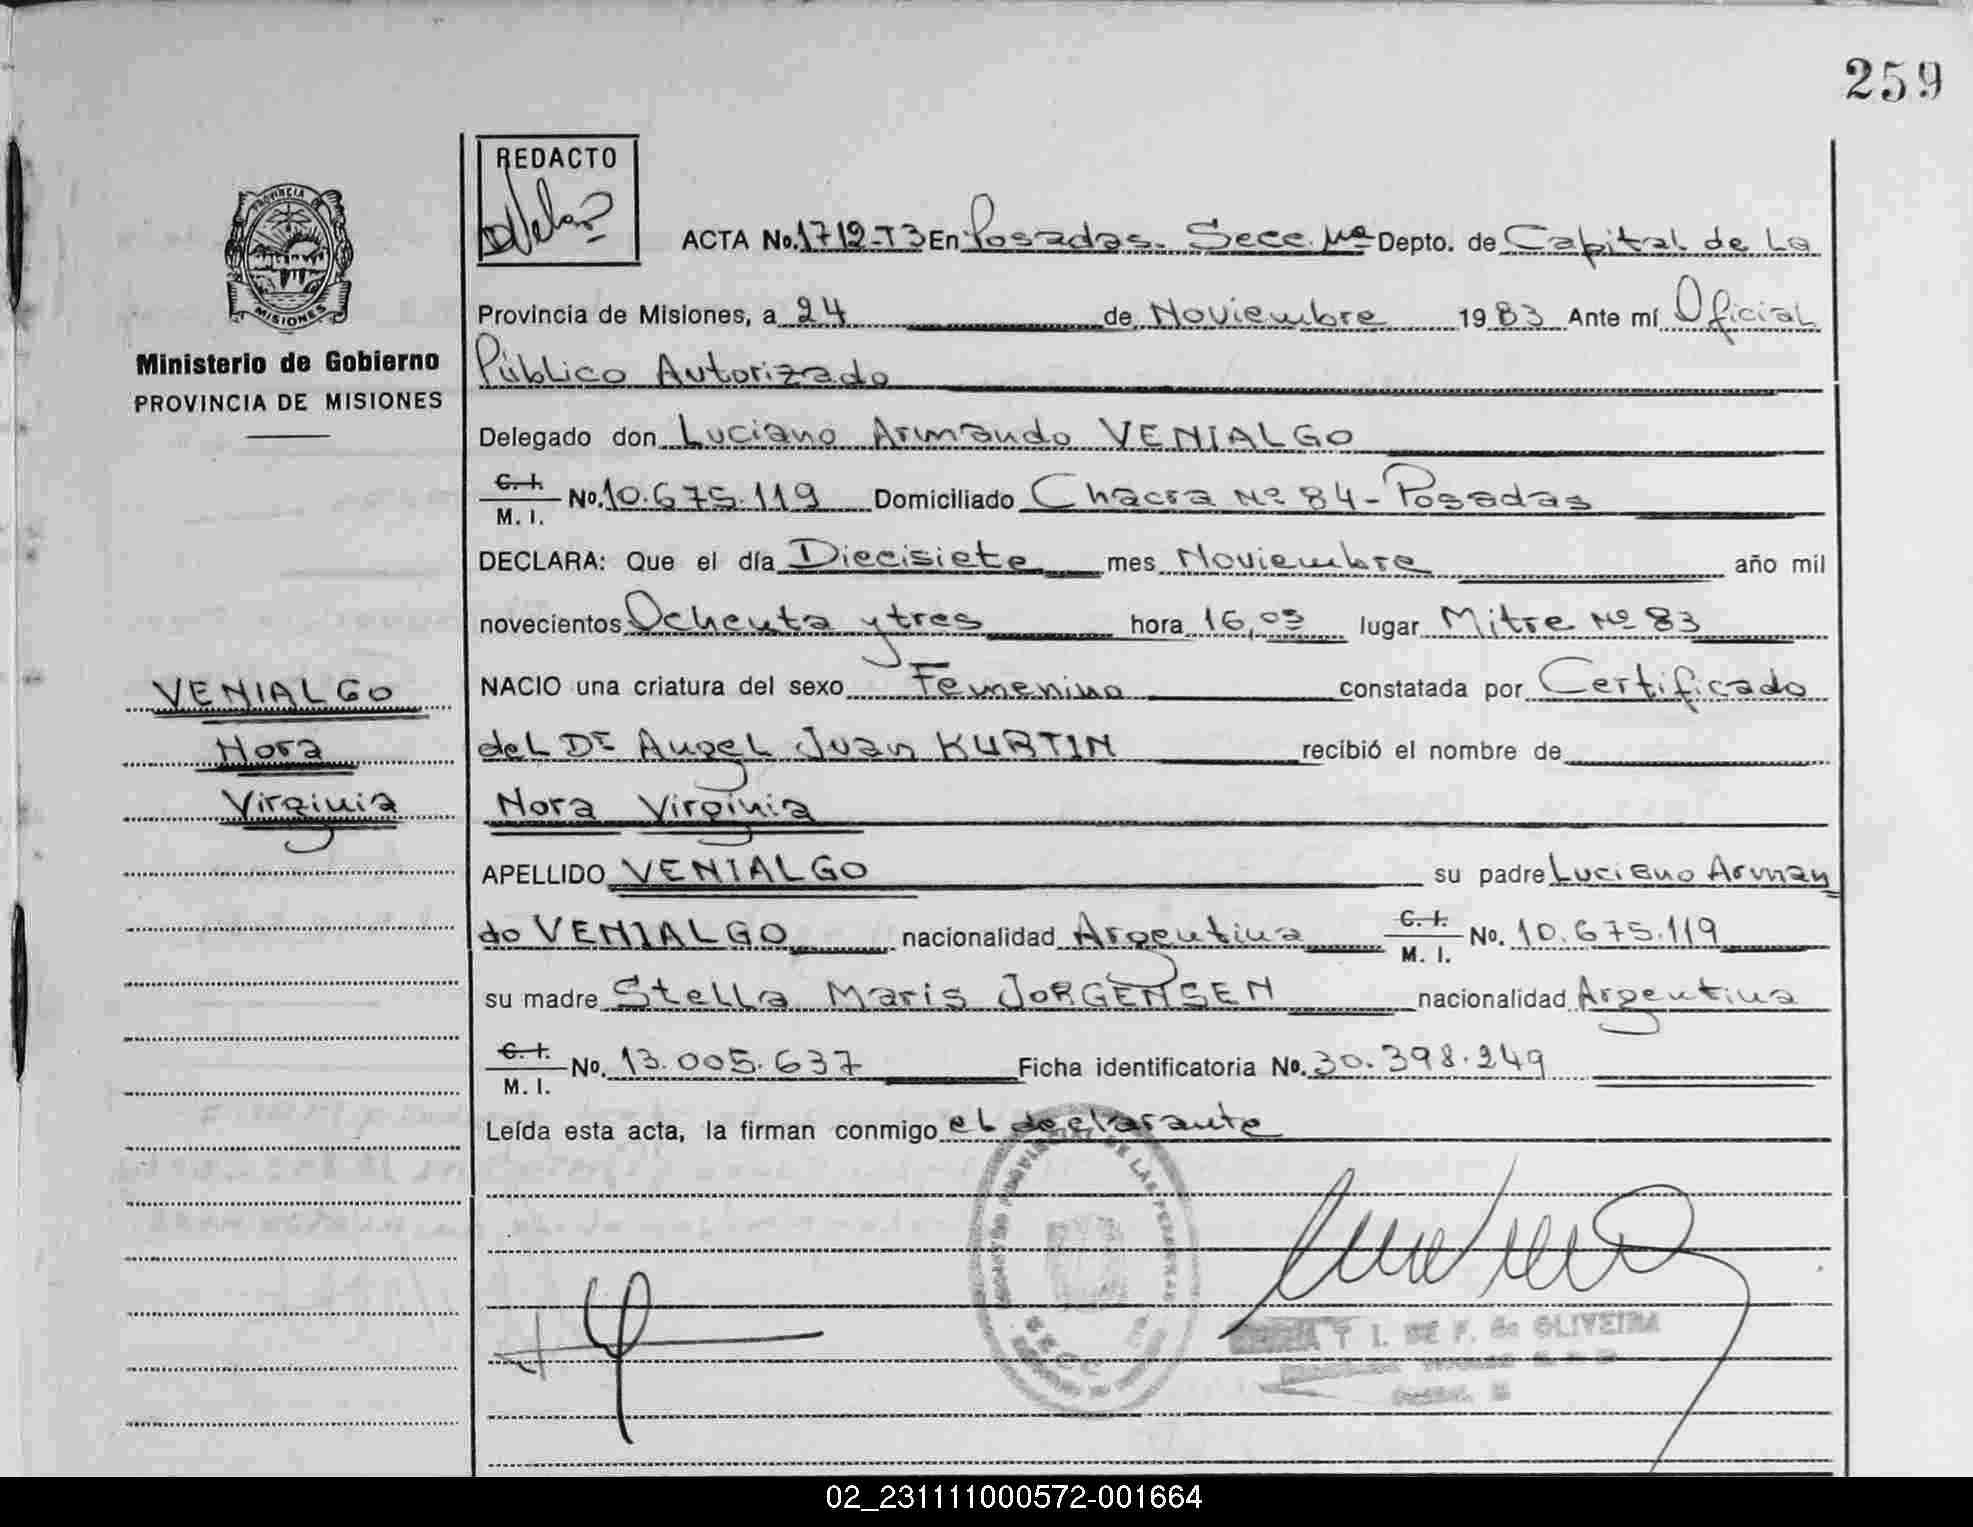 259
REDACTO
PROVINCIA DE
MISIONES
ACTA No. 1712-T3 En Posadas. Secc. 1ra Depto. de Capital de La
Provincia de Misiones, a 24 de Noviembre 1983 Ante mí Oficial
Ministerio de Gobierno
PROVINCIA DE MISIONES
Público Autorizado
Delegado don Luciano Armando VENIALGO
C. I. M. I. No. 10.675.119 Domiciliado Chacra Nº 84 - Posadas
DECLARA: Que el día Diecisiete mes Noviembre año mil
novecientos Ochenta y tres hora 16,05 lugar Mitre Nº 83
VENIALGO
Nora
Virginia
NACIO una criatura del sexo Femenino constatada por Certificado
del Dr Angel Juan KURTIN recibió el nombre de
Nora Virginia
APELLIDO VENIALGO su padre Luciano Arman
do VENIALGO nacionalidad Argentina C. I. M. I. No. 10.675.119
su madre Stella Maris JORGENSEN nacionalidad Argentina
C. I. M. I. No. 13.005.637 Ficha identificatoria No. 30.398.249
Leída esta acta, la firman conmigo el declarante
DE LAS PERSONAS
I. DE F. de OLIVEIRA
02_231111000572-001664